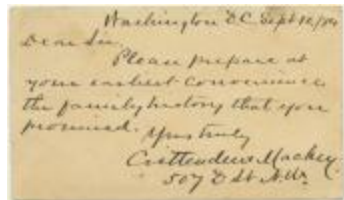 Washington D.C. Sept 10/84
Dear Sir,
Please prepare at
your earliest convenience
the family history that you
promised.
Yours truly
Crittenden Mackey
507 D St N.W.